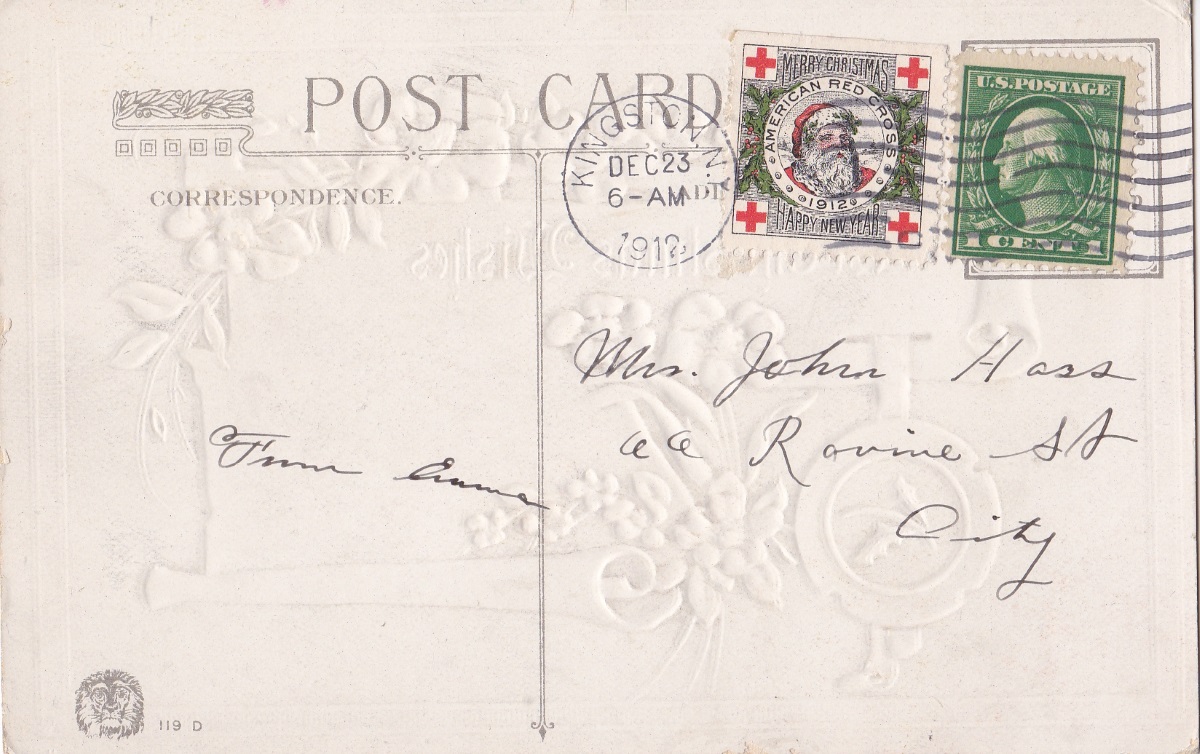 POST CARD
CORRESPONDENCE.
KINGSTON, N.Y.
DEC 23
6-AM
1912
MERRY CHRISTMAS
AMERICAN RED CROSS
1912
HAPPY NEW YEAR
U.S. POSTAGE
1 CENT 1
Mrs. John Hass
Ravine St
City
From Emma
119 D